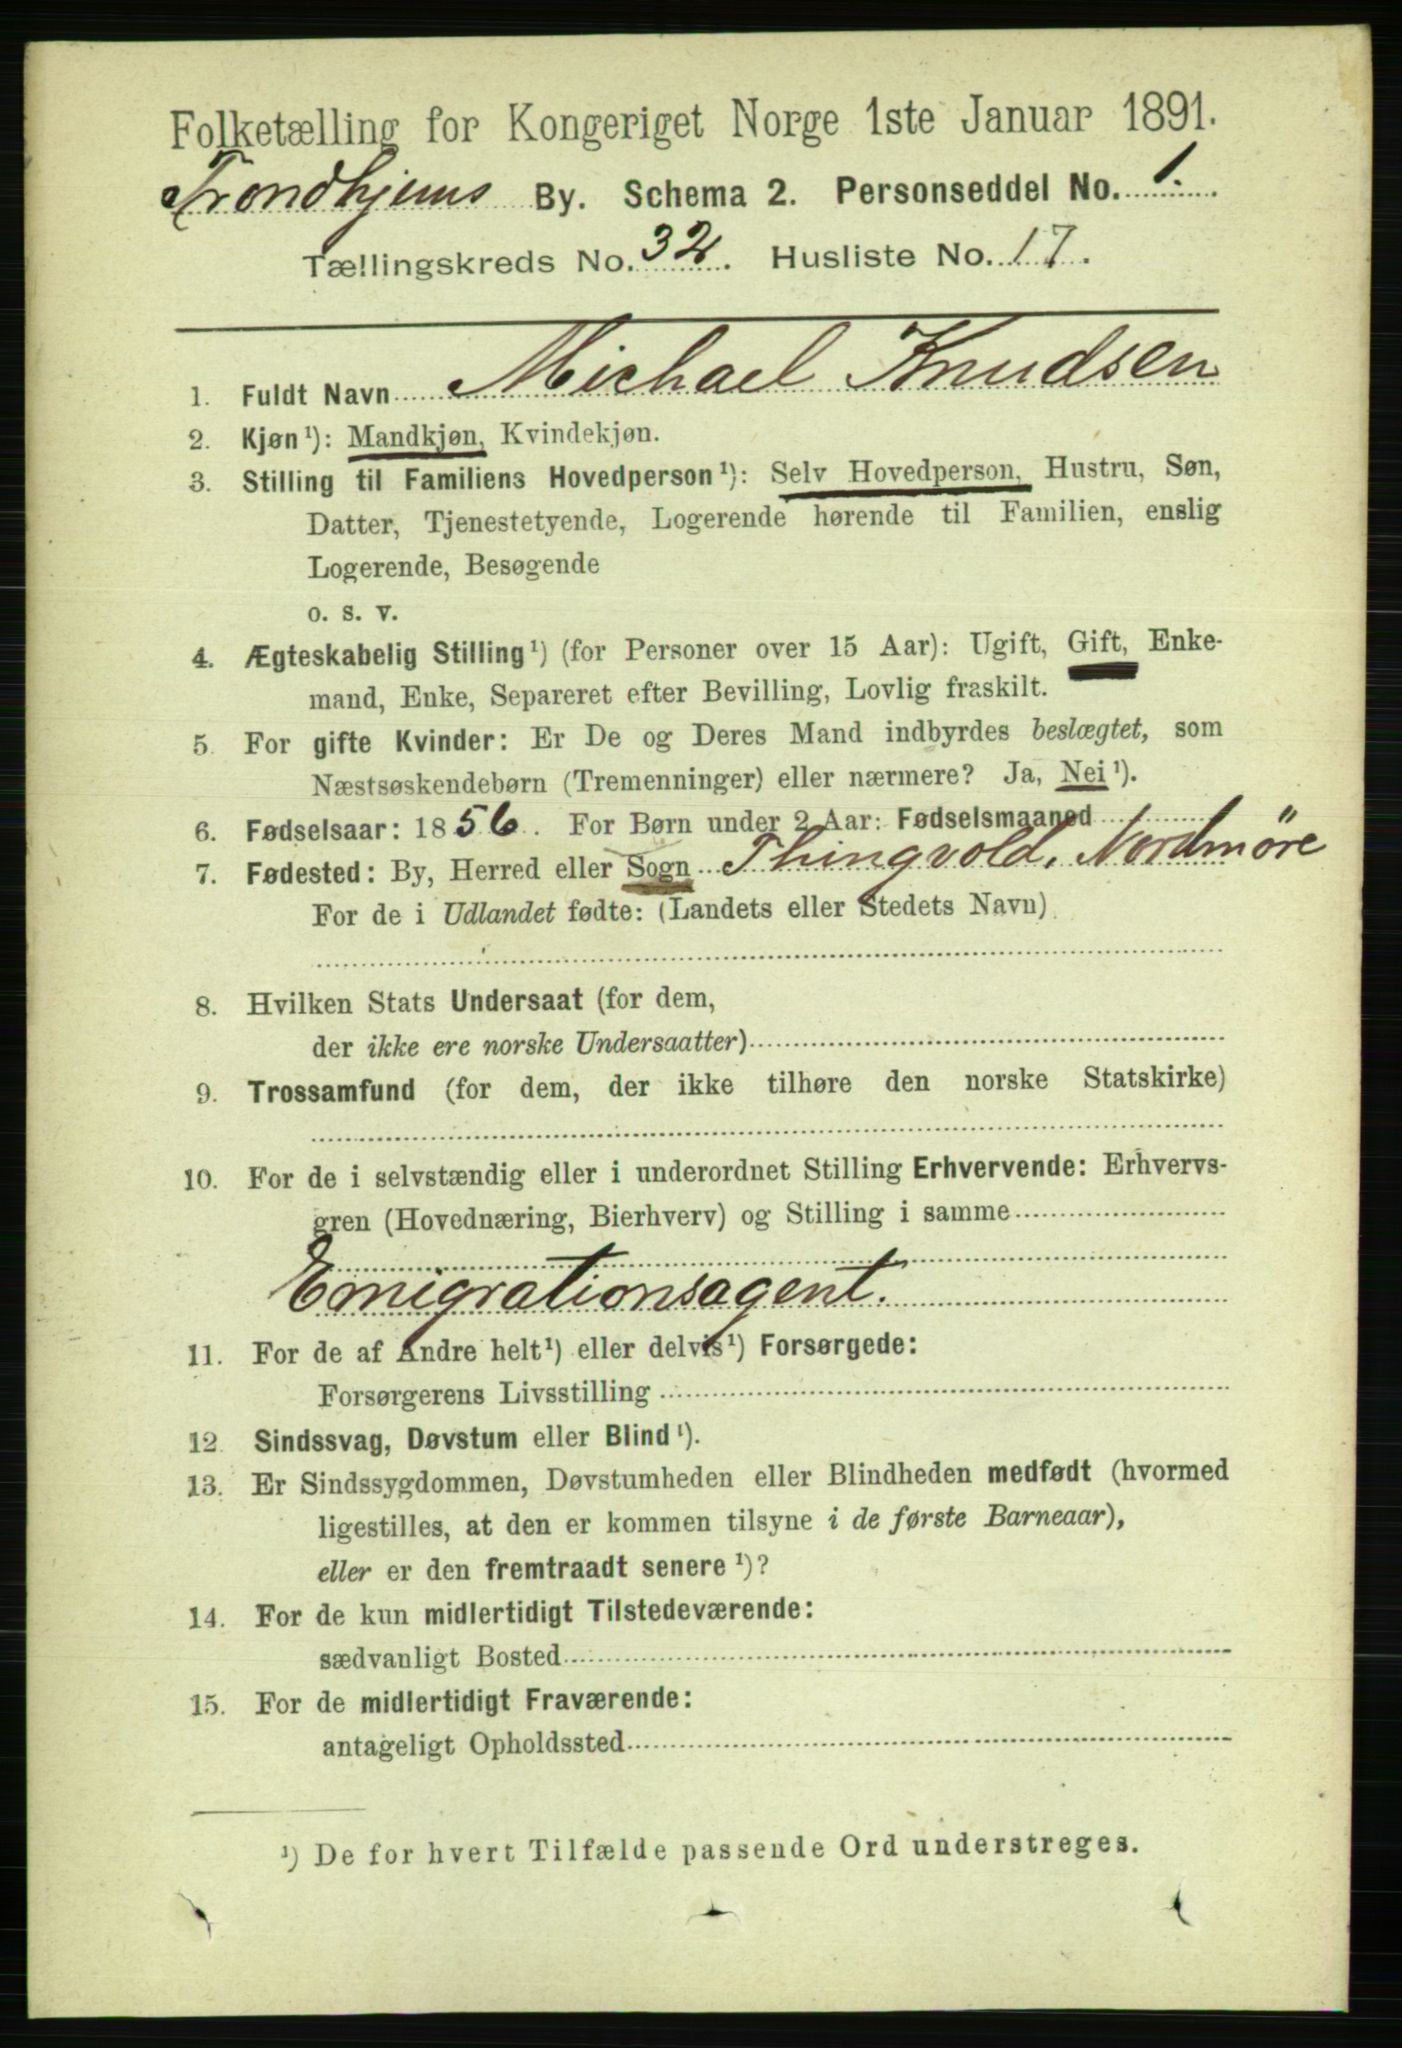 Folketælling for Kongeriget Norge 1ste Januar 1891.
Trondhjems By. Schema 2. Personseddel No. 1.
Tællingskreds No. 32. Husliste No. 17.
1. Fuldt Navn Michael Knudsen
2. Kjøn¹): Mandkjøn, Kvindekjøn.
3. Stilling til Familiens Hovedperson¹): Selv Hovedperson, Hustru, Søn,
Datter, Tjenestetyende, Logerende hørende til Familien, enslig
Logerende, Besøgende
o. s. v.
4. Ægteskabelig Stilling¹) (for Personer over 15 Aar): Ugift, Gift, Enke-
mand, Enke, Separeret efter Bevilling, Lovlig fraskilt.
5. For gifte Kvinder: Er De og Deres Mand indbyrdes beslægtet, som
Næstsøskendebørn (Tremenninger) eller nærmere? Ja, Nei¹).
6. Fødselsaar: 1856. For Børn under 2 Aar: Fødselsmaaned
7. Fødested: By, Herred eller Sogn Thingvold, Nordmøre
For de i Udlandet fødte: (Landets eller Stedets Navn)
8. Hvilken Stats Undersaat (for dem,
der ikke ere norske Undersaatter)
9. Trossamfund (for dem, der ikke tilhøre den norske Statskirke)
10. For de i selvstændig eller i underordnet Stilling Erhvervende: Erhvervs-
gren (Hovednæring, Bierhverv) og Stilling i samme
Emigrationsagent.
11. For de af Andre helt¹) eller delvis¹) Forsørgede:
Forsørgerens Livsstilling
12. Sindssvag, Døvstum eller Blind¹).
13. Er Sindssygdommen, Døvstumheden eller Blindheden medfødt (hvormed
ligestilles, at den er kommen tilsyne i de første Barneaar),
eller er den fremtraadt senere¹)?
14. For de kun midlertidigt Tilstedeværende:
sædvanligt Bosted
15. For de midlertidigt Fraværende:
antageligt Opholdssted
¹) De for hvert Tilfælde passende Ord understreges.